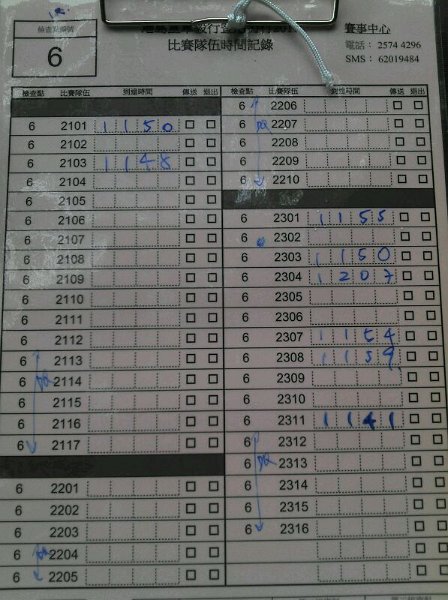 檢查點編號
6
比賽隊伍時間記錄
賽事中心
電話： 2574 4296
SMS： 62019484
檢查點 比賽隊伍 到達時間 傳送 退出
6 2101 1150
6 2102
6 2103 1148
6 2104
6 2105
6 2106
6 2107
6 2108
6 2109
6 2110
6 2111
6 2112
6 2113
6 2114
6 2115
6 2116
6 2117
6 2201
6 2202
6 2203
6 2204
6 2205
檢查點 比賽隊伍 到達時間 傳送 退出
6 2206
6 2207
6 2208
6 2209
6 2210
6 2301 1155
6 2302
6 2303 1150
6 2304 1207
6 2305
6 2306
6 2307 1154
6 2308 1159
6 2309
6 2310
6 2311 1141
6 2312
6 2313
6 2314
6 2315
6 2316